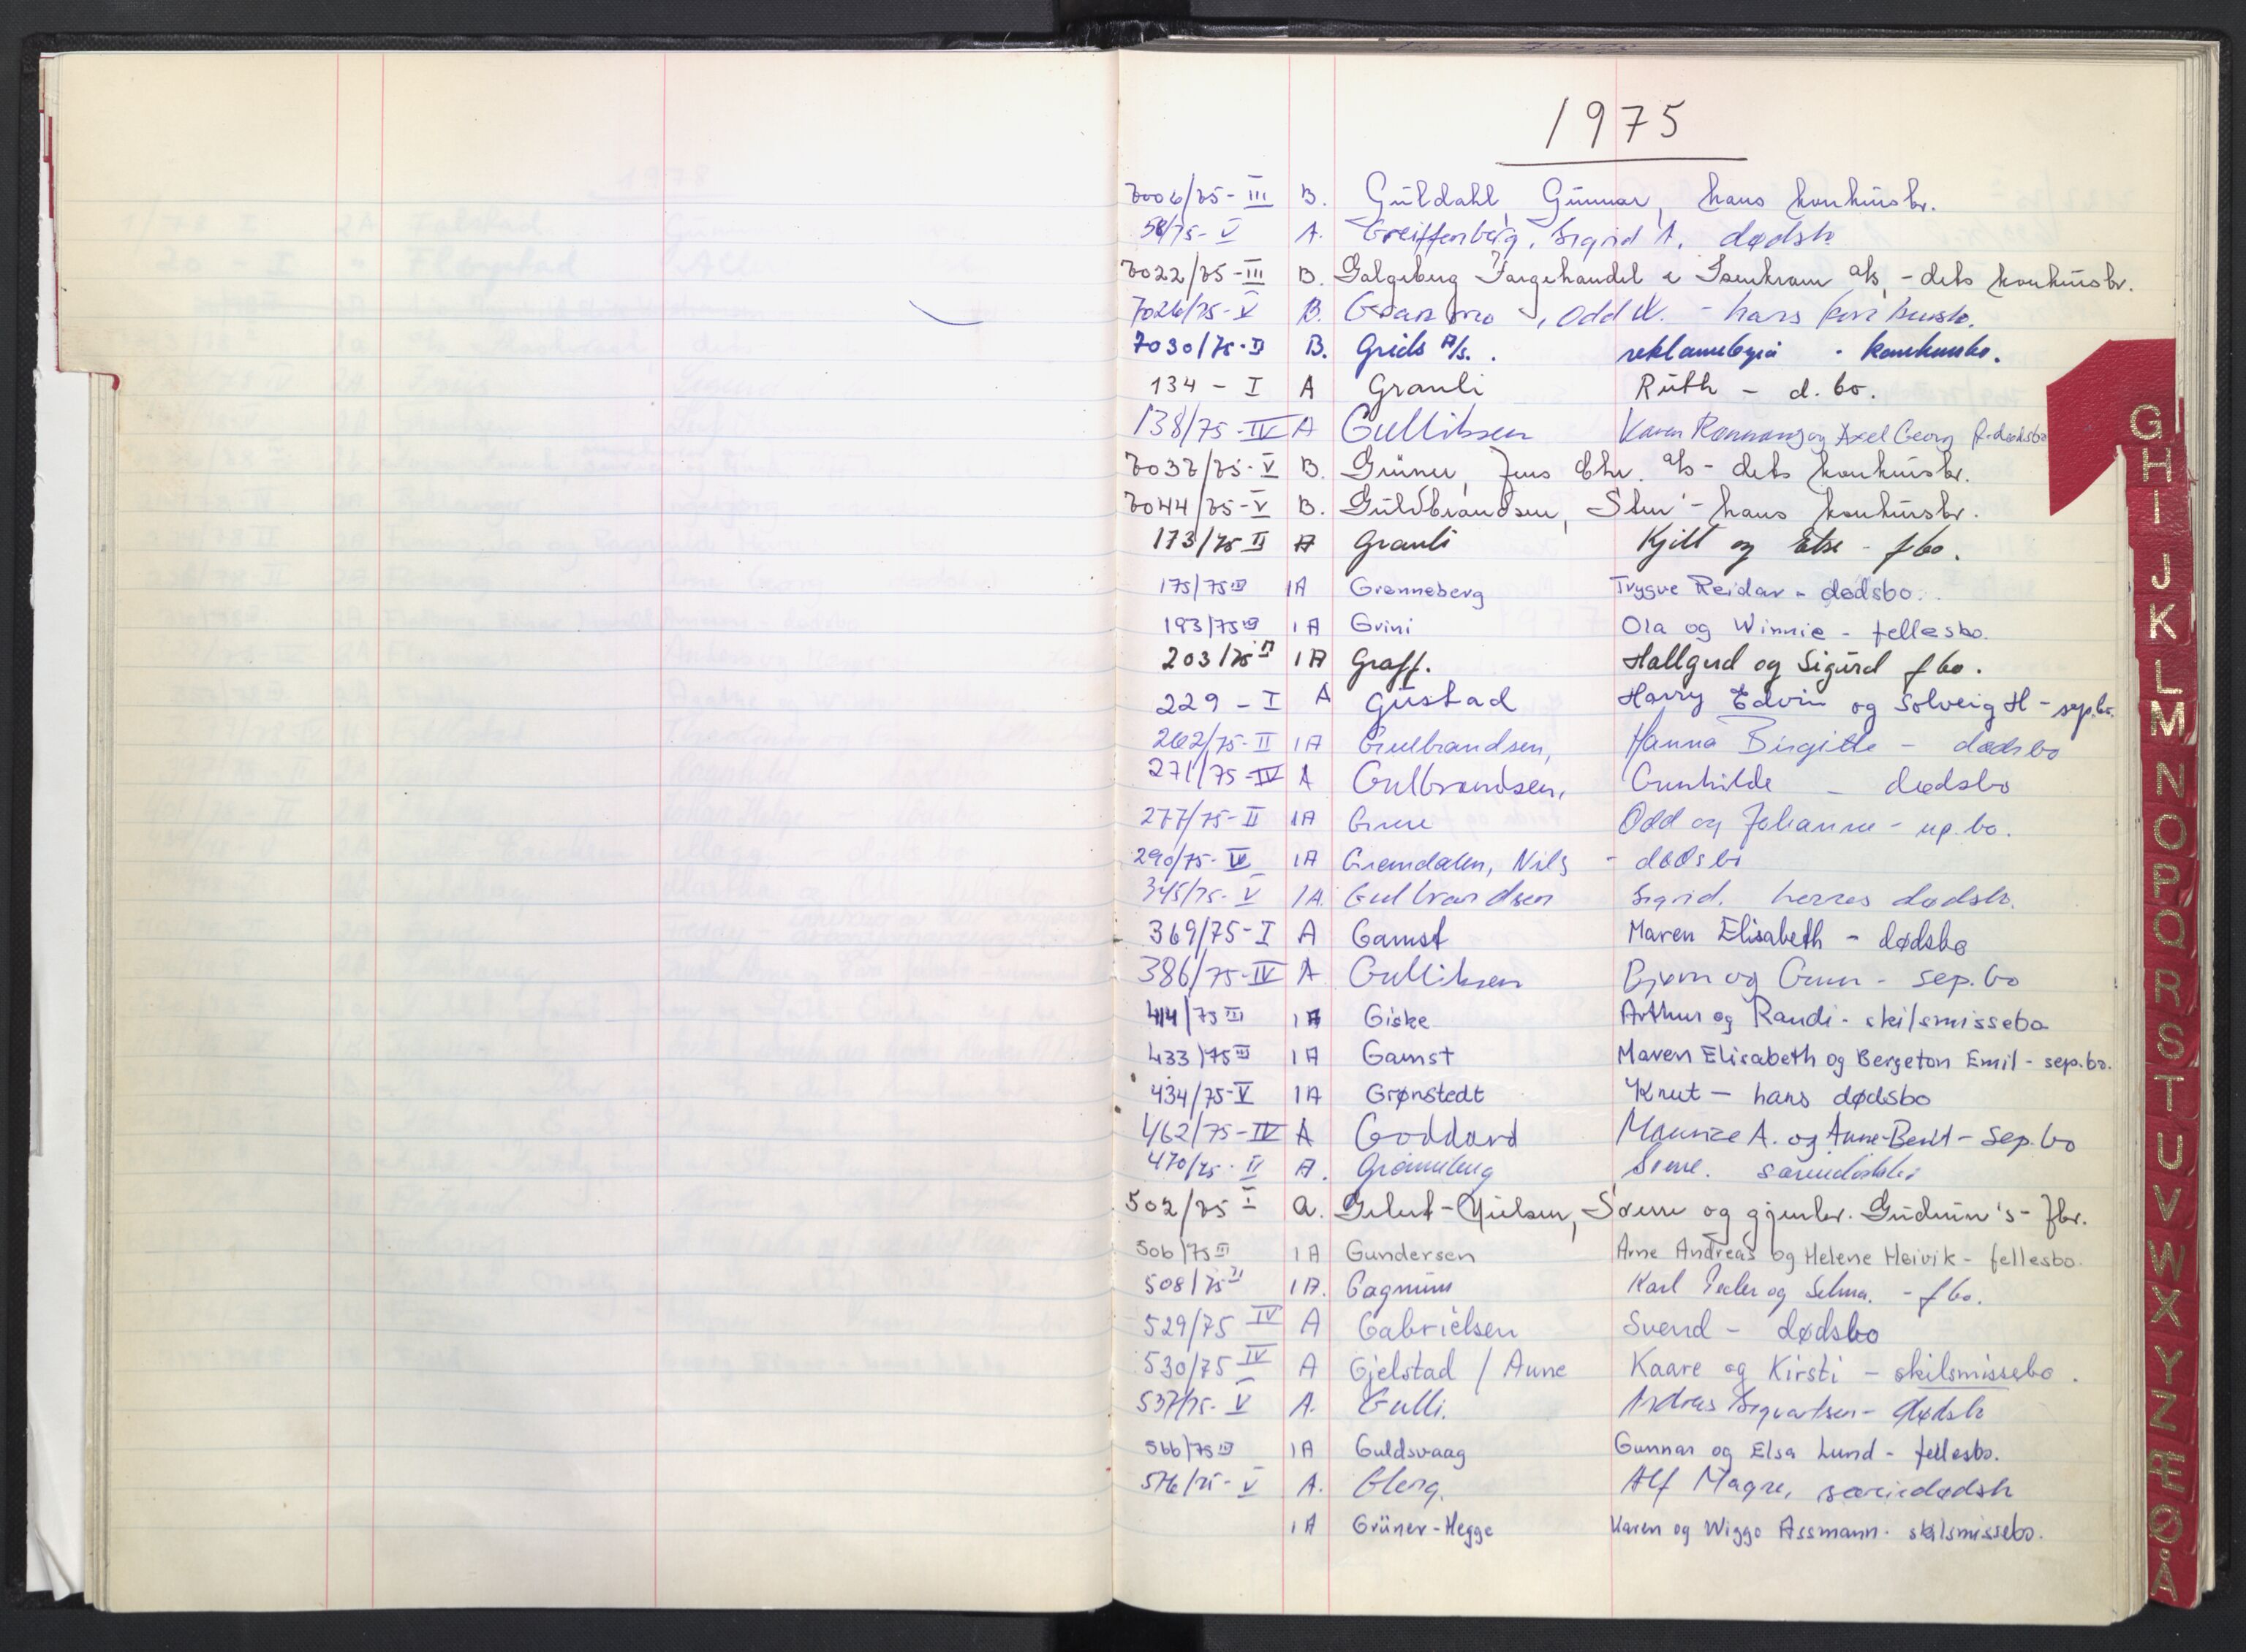 1975
7006/75-III B. Guldahl, Gunnar, hans konkursbo.
58/75-V A. Greiffenberg, Sigrid A. dødsbo
7022/75-III B. Galgeberg Fargehandel & Isenkram A/S, - dets konkursbo.
7026/75-V B. Granmo, Odd W. - hans konkursbo.
7030/75-II B. Grids A/S. reklamebyrå - konkursbo.
134 - I A Granli Ruth - d. bo.
138/75-IV A Gulliksen Karen Rannaug og Axel Georg f.dødsbo
7037/75-V B. Grüner, Jens Chr. A/S - dets konkursbo.
7044/75-V B. Guldbrandsen, Sten - hans konkursbo.
173/75 II A Granli Kjell og Else - fbo.
175/75 III 1A Grønneberg Trygve Reidar - dødsbo.
183/75 III 1A Grini Ola og Winnie - fellesbo.
203/75 II 1A Graff. Hallgerd og Sigurd fbo.
229 - I A Gustad Harry Edvin og Solveig H - sep.bo.
262/75-II 1A Gulbrandsen, Hanna Birgitte - dødsbo
271/75-IV A Gulbrandsen, Gunhilde - dødsbo
277/75-II 1A Grue Odd og Johanne - sep. bo.
290/75-IV 1A Gremdalen, Nils - dødsbo
345/75-V 1A. Gulbrandsen Sigrid. hennes dødsbo.
369/75-I A Gamst Maren Elisabeth - dødsbo
386/75-IV A Gulliksen Bjørn og Gunn - sep. bo
414/75 III 1A Giske Arthur og Randi - skilsmissebo
433/75 III 1A Gamst Maren Elisabeth og Bergeton Emil - sep.bo.
434/75-V 1A Grønstedt Knut - hans dødsbo
462/75-IV A Goddard Maurice A. og Anne-Berit - sep. bo
470/75-II A. Grønneberg særiedødsbo
502/75 I A. Gelert-Nielsen, Sverre og gjenlev. Gudrun's - fbo.
506/75 III 1A Gundersen Arne Andreas og Helene Høivik - fellesbo.
508/75 II 1A. Gagnum Karl Peder og Selma. - fbo.
529/75 IV A Gabrielsen Svend - dødsbo
530/75 IV A Gjelstad / Aune Kaare og Kirsti - skilsmissebo.
537/75-V A. Gulli. Andreas Sigvartsen - dødsbo
566/75 III 1A Guldsvaag Gunnar og Elsa Lund - fellesbo.
576/75-V A. Alf Magne, særiedødsbo
1A Grüner-Hegge Karen og Wiggo Assmann - skilsmissebo.
G
H
I
J
K
L
M
N
O
P
Q
R
S
T
U
V
W
X
Y
Z
Æ
Ø
Å